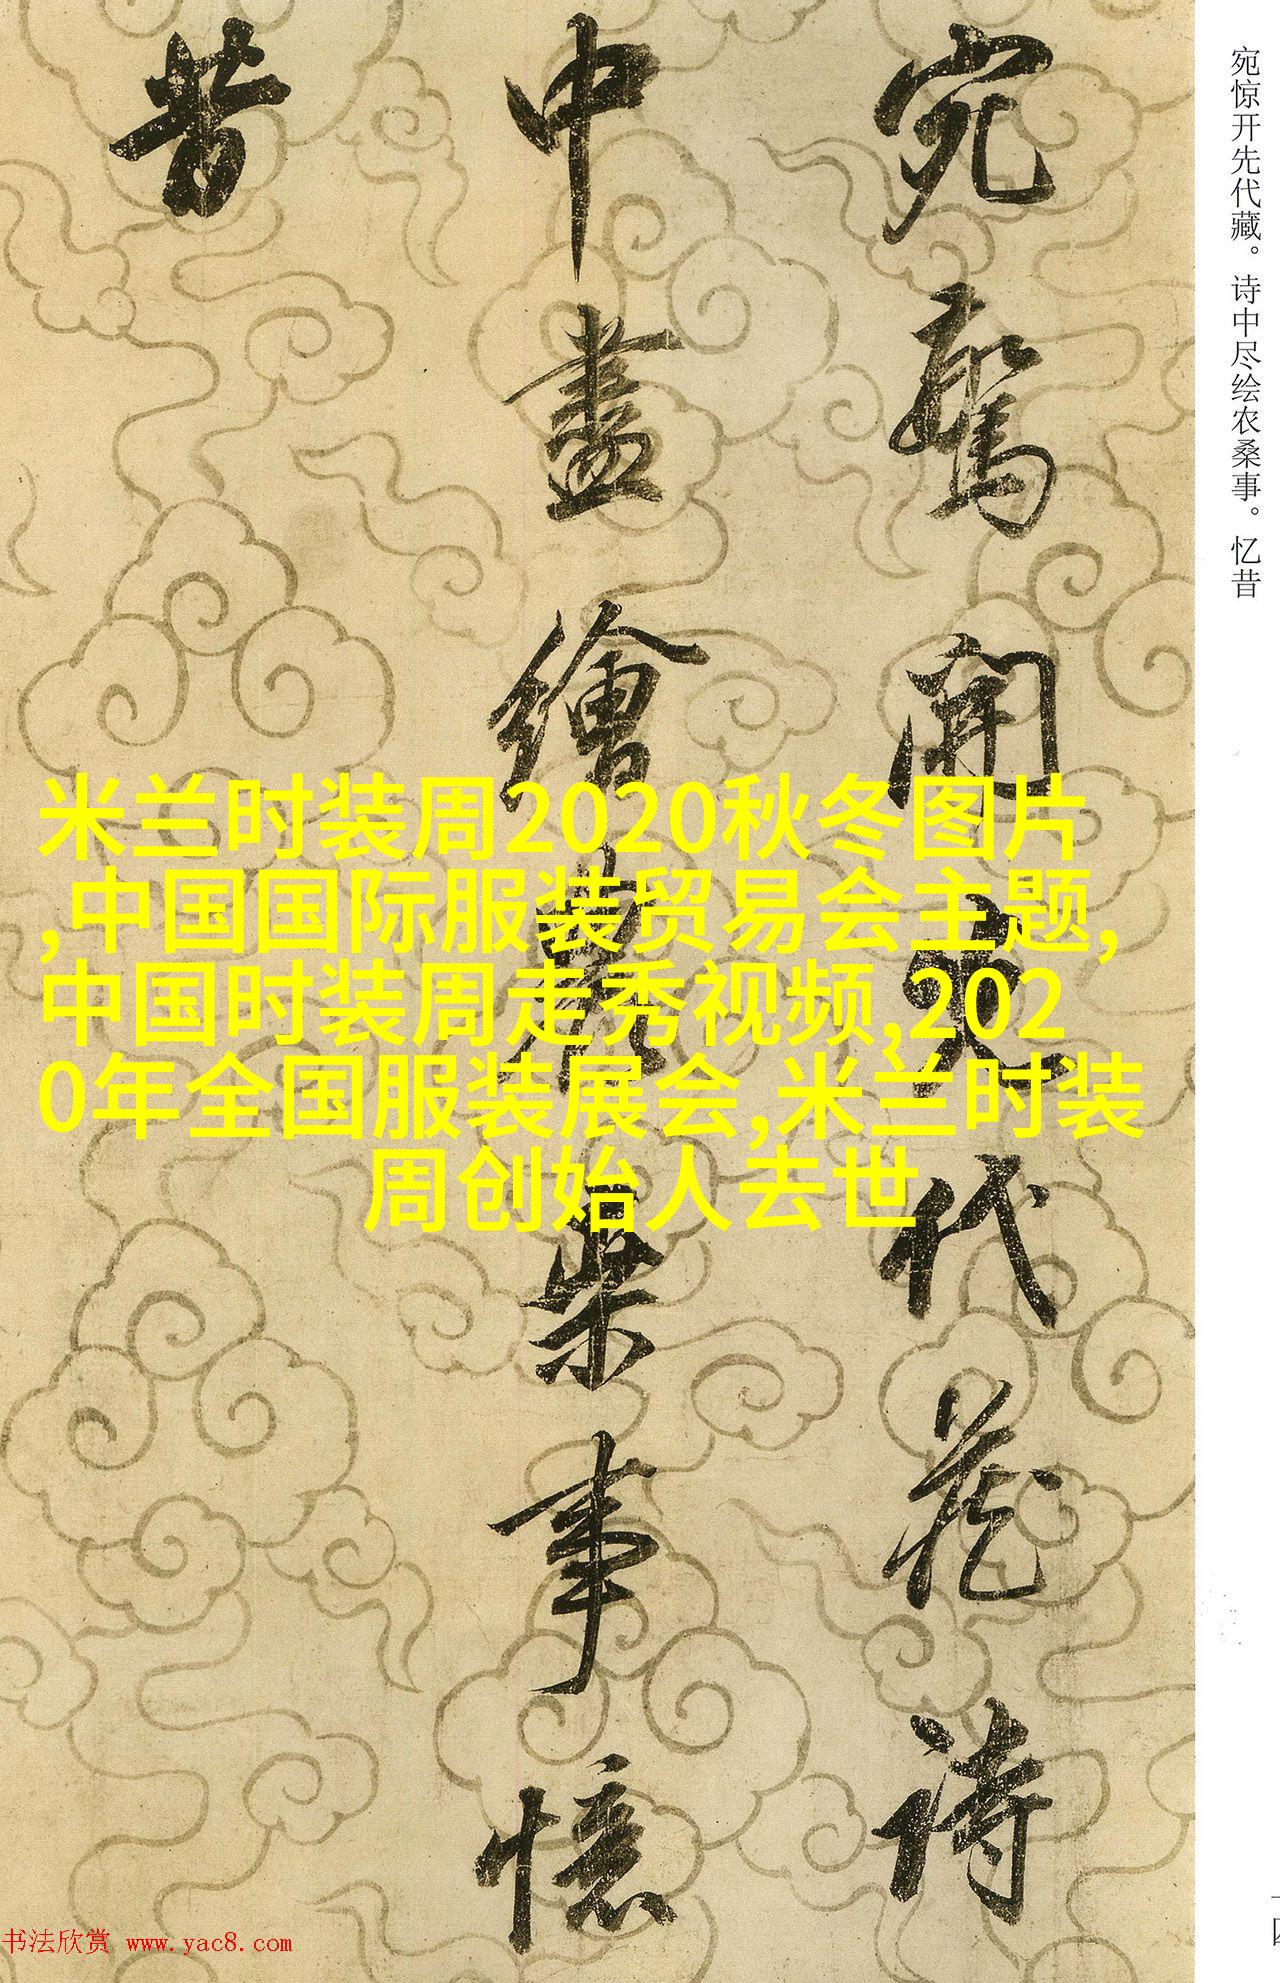 宛惊开先代藏。诗中尽绘农桑事。忆昔
宛驚開先代藏詩
中盡繪農桑事憶
昔
米兰时装周2020秋冬图片
,中国国际服装贸易会主题,
中国时装周走秀视频,202
0年全国服装展会,米兰时装
周创始人去世
书法欣赏 www.yac8.com